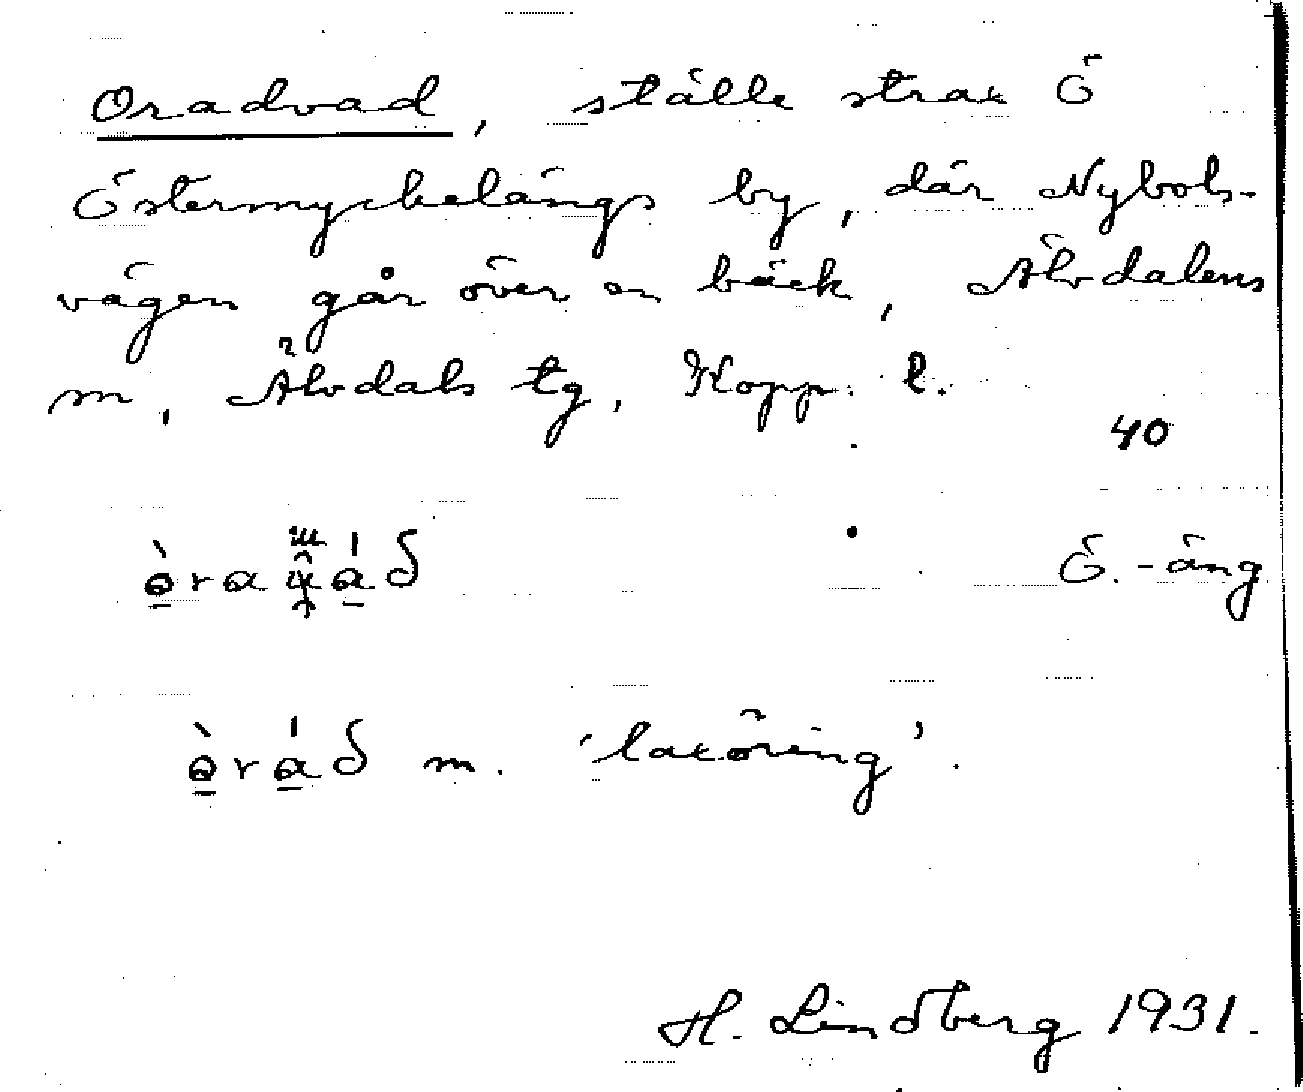 Oradvad, ställe strax Ö
Östermyckelängs by, där Nybols-
vägen går över en bäck, Älvdalens
m, Älvdals tg, Kopp. l.
40
Ö.-äng
m. 'laxöring'.
H. Lindberg 1931.